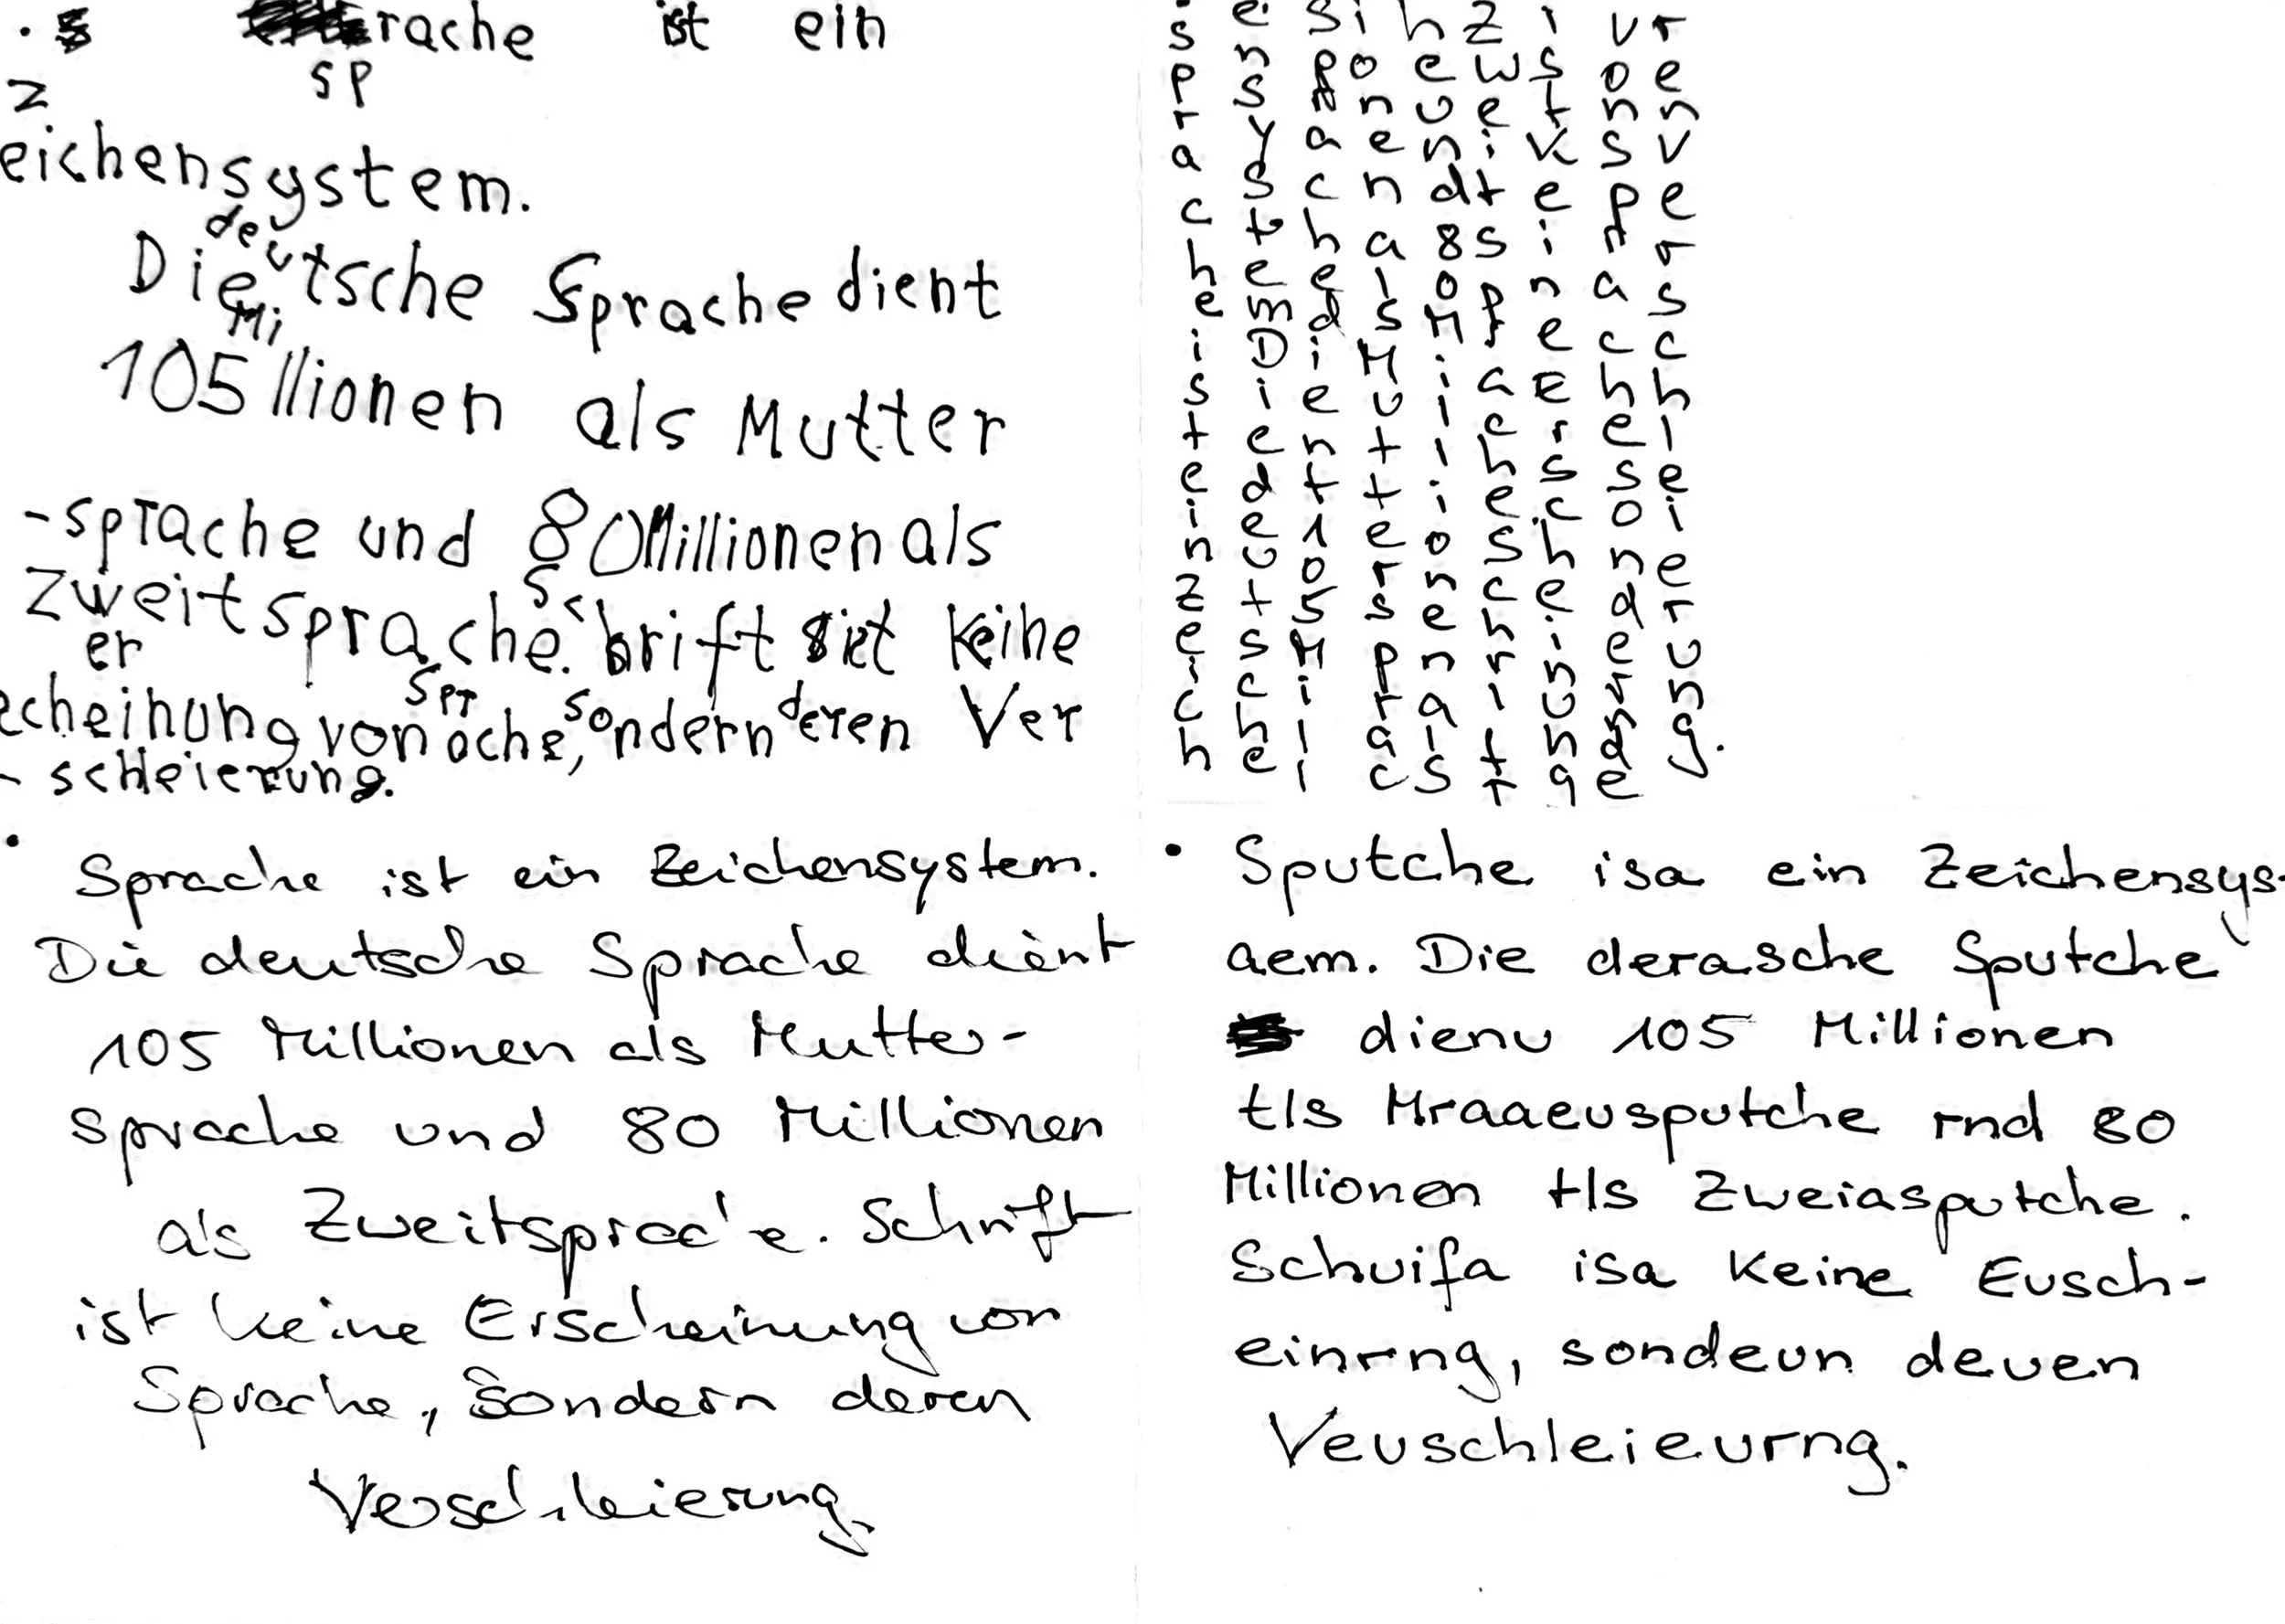 · s Sprache ist ein
Z
eichensystem.
Die deutsche Sprache dient
105 Millionen als Mutter
-sprache und 80 Millionen als
Zweitsprache. Schrift ist keine
erscheinung von Sprache, sondern deren Ver
- schleierung.
spracheisteinzeich
ensystemDiedeutsche
Sprachedient105Mill
ionenalsMuttersprac
heund80Millionenals
zweitspracheschrift
istkeineErscheinung
vonspracheson­dernde
renverschleierung.
• Sprache ist ein Zeichensystem.
Die deutsche Sprache dient
105 Millionen als Mutter-
sprache und 80 Millionen
als Zweitsprache. Schrift
ist keine Erscheinung von
Sprache, sondern deren
Verschleierung.
• Sputche isa ein Zeichensys-
aem. Die derasche Sputche
dienu 105 Millionen
tls Mraaeusputche rnd 80
Millionen tls Zweiasputche.
Schuifa isa keine Eusch-
einrng, sondeun deuen
Veuschleieurng.